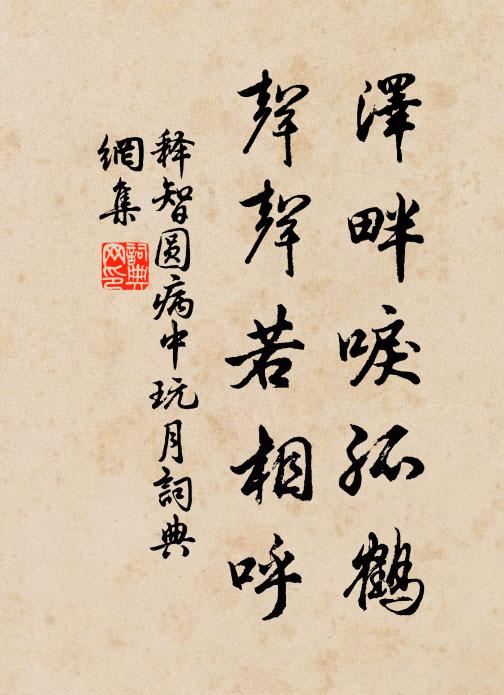 澤畔唳孤鶴
聲聲若相呼
释智圓病中玩月詞典
網集
詞典
网印